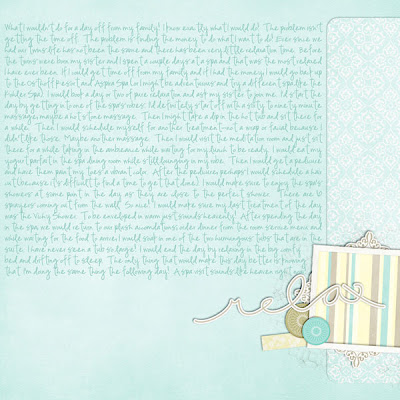 What I wouldn't do for a day off from my family! I know exactly what I would do! The problem isn't
getting the time off. The problem is finding the money to do what I want to do! Ever since we
had our twins life has not been the same and there has been very little relaxation time. Before
the twins were born my sister and I spent a couple days at a spa and that was the most relaxed
I have ever been. If I could get time off from my family and if I had the money, I would go back up
to the Osthoff Resort and Aspira Spa
I would book a day or two of pure relaxation and ask my sister to join me. I'd start the
day by getting in one of the spa's robes. I'd definitely start off with a sixty minute
massage, maybe a hot stone massage. Then I might take a dip in the hot tub and sit there for
a while. Then I would schedule myself for another treatment - not a wrap or facial because I
didn't like those. Maybe another massage. Then I would visit the meditation room and just sit
there for a while taking in the ambience while waiting for my lunch to be ready. I would eat my
yogurt parfait in the spa dining room while still lounging in my robe. Then I would get a pedicure
and have them paint my toes a vibrant color. After the pedicure, perhaps I would schedule a hair
cut (because it's difficult to find a time to get that done). I would make sure to enjoy the spa's
showers at some point in the day as they are close to the perfect shower. There are 10
sprayers coming out from the wall. So nice! I would make sure my last treatment of the day
was the Vichy Shower. To be enveloped in warm just sounds heavenly! After spending the day
in the spa we would return to our plush accomodations, order dinner from the room service menu and
while waiting for the food to arrive I would soak in one of the two humungous tubs that are in the
suite. I have never seen a tub so large! I would end the day by relaxing in the big comfy
bed and drifting off to sleep. The only thing that would make this day better is knowing
that I'm doing the same thing the following day! A spa visit sounds like heaven right now
relax